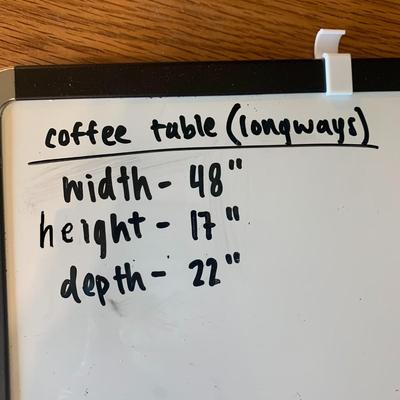 coffee table (longways)
width- 48"
height- 17"
depth- 22"